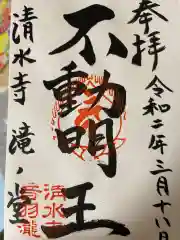 奉拝
令和二年三月十八日
不動明王
清水寺 滝ノ堂
清水寺
音羽瀧